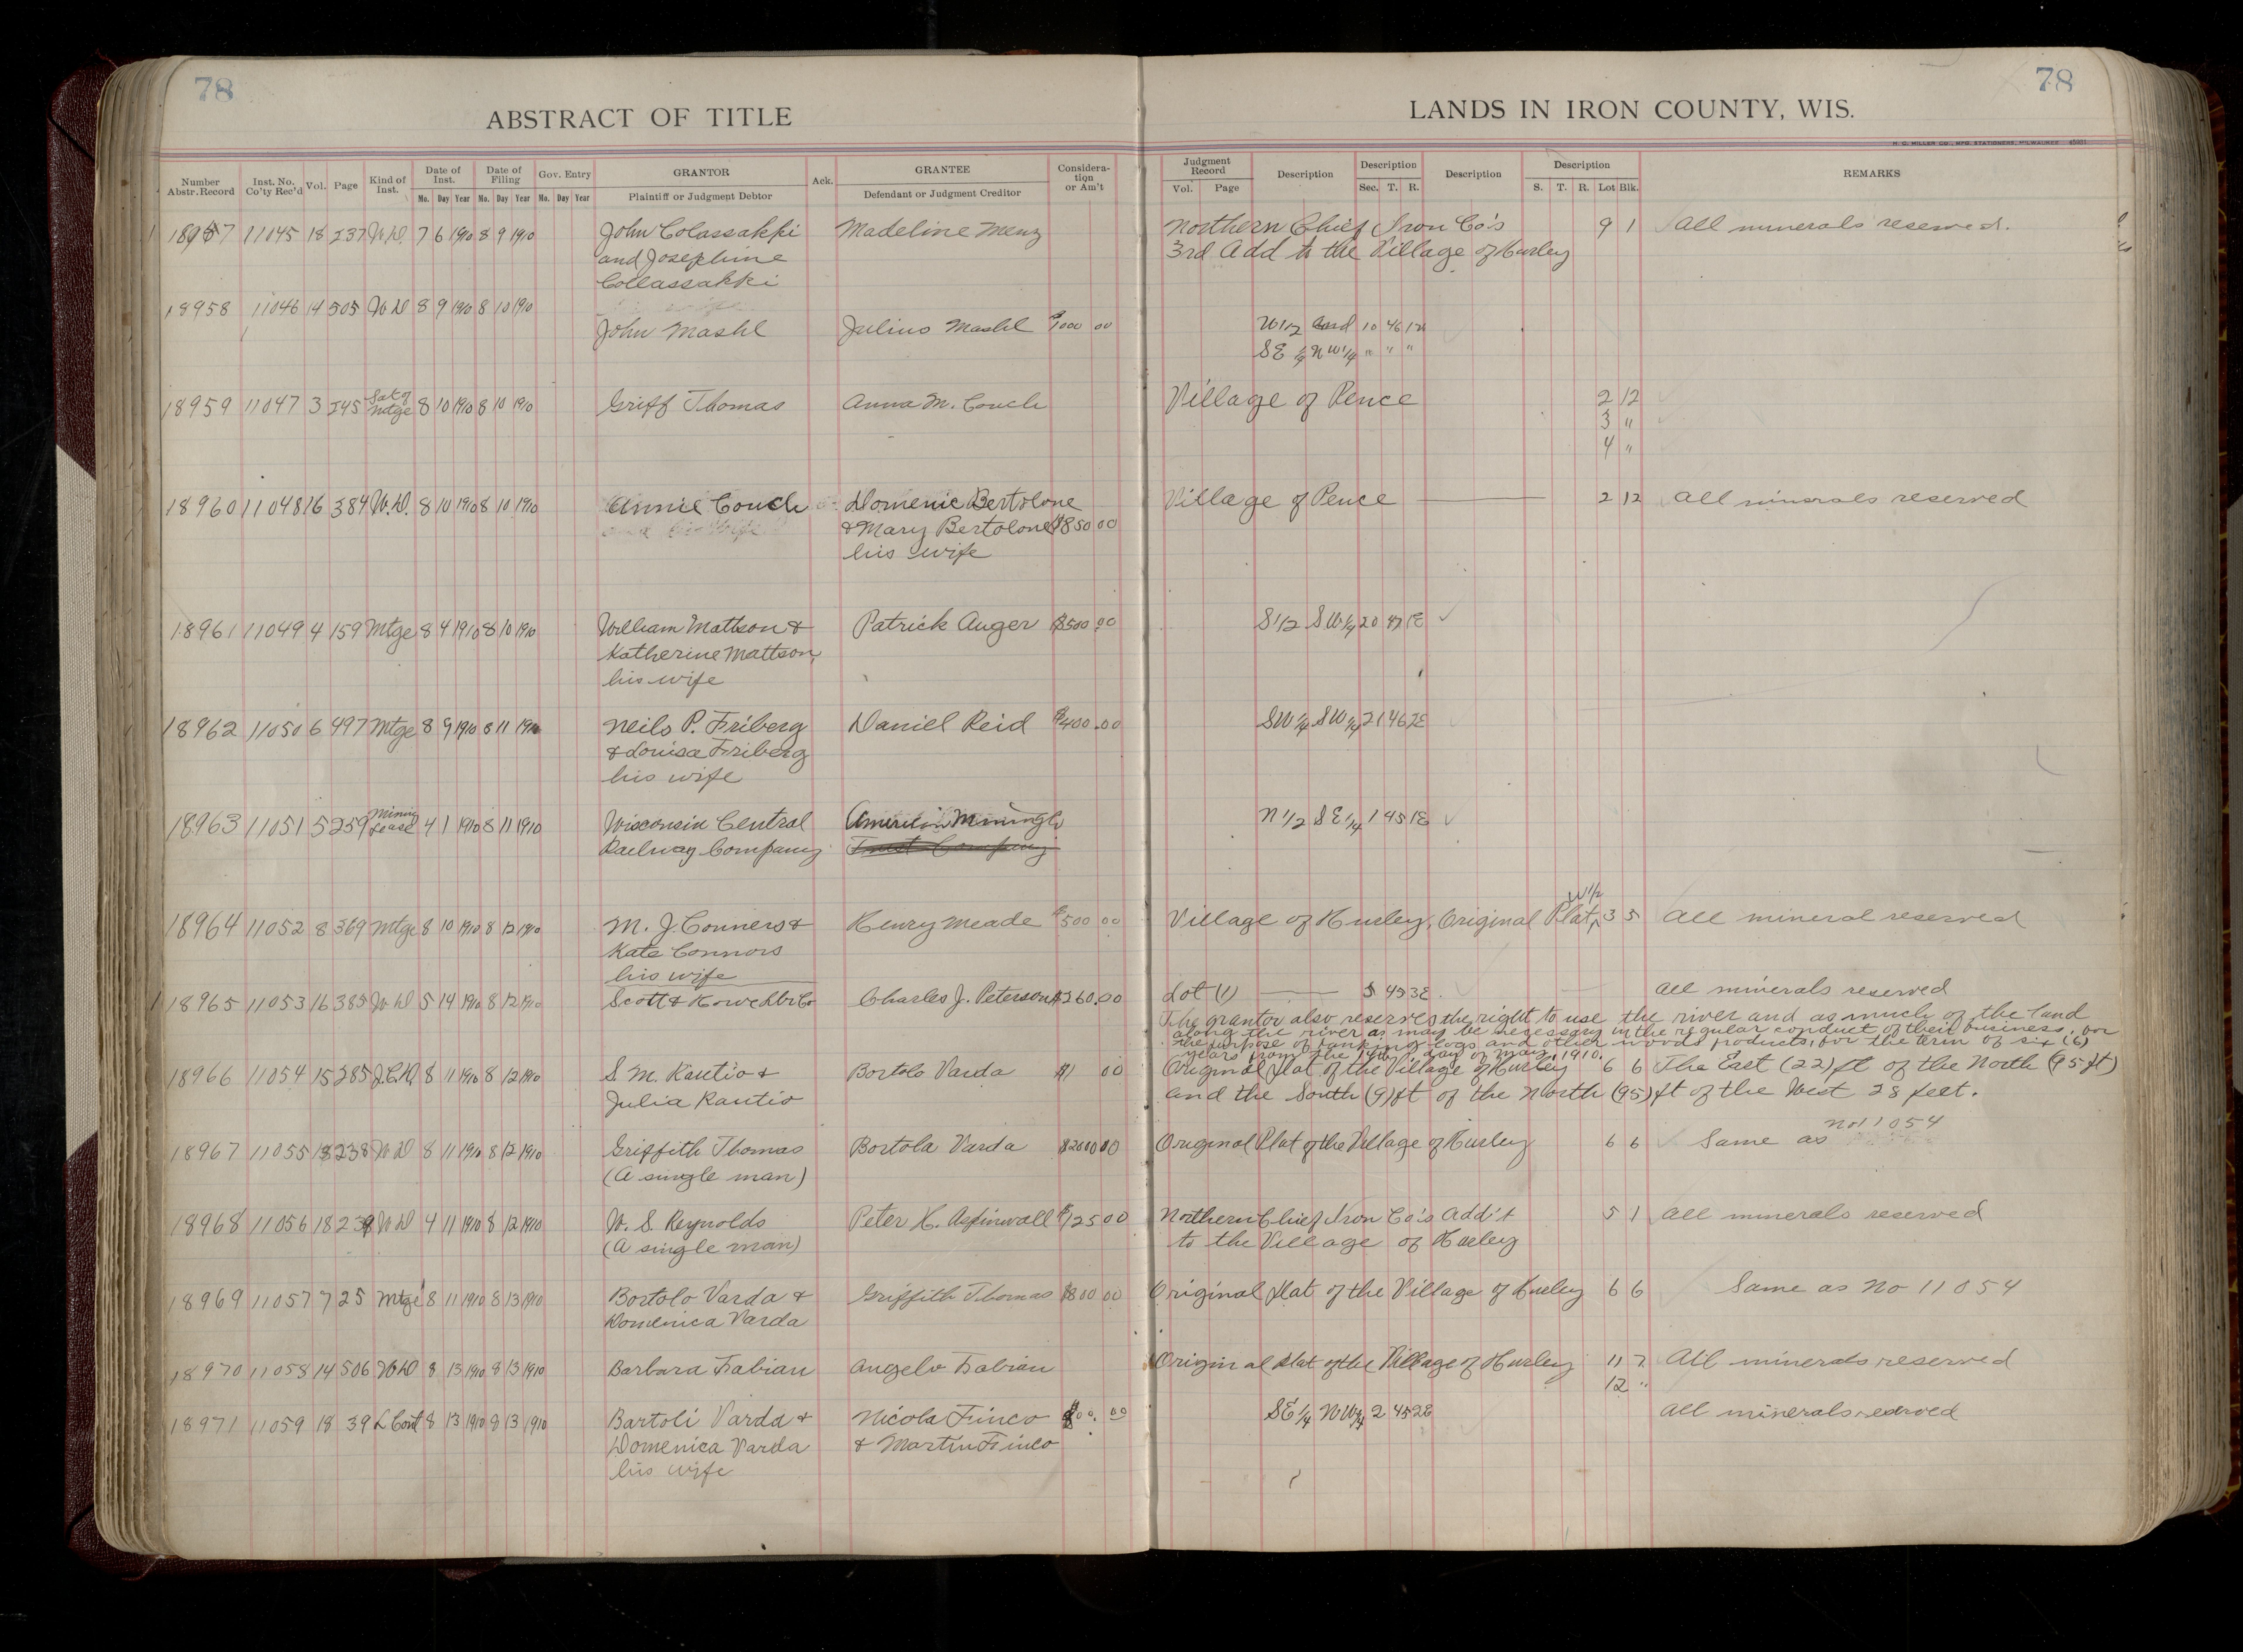 78
78
ABSTRACT OF TITLE
LANDS IN IRON COUNTY, WIS.
H. C. MILLER CO., MFG. STATIONERS, MILWAUKEE
Number Abstr. Record Inst. No. Co'ty Rec'd Vol. Page Kind of Inst. Date of Inst. Date of Filing Gov. Entry GRANTOR Ack. GRANTEE Considera-tion or Am't Judgment Record Description Description Description Description REMARKS
Mo. Day Year Mo. Day Year Mo. Day Year Plaintiff or Judgment Debtor Defendant or Judgment Creditor Vol. Page Sec. T. R. S. T. R. Lot Blk.
18957 11045 18 237 W.D. 7 6 1910 8 9 1910 John Colassakki Madeline Menz Northern Chief Iron Co's 9 1 All minerals reserved.
and Josephine 3rd Add to the Village of Hurley
Collassakki
18958 11046 14 505 W D 8 9 1910 8 10 1910
John Mashl Julius Mashl $1000 00 W 1/2 and 10 46 1E
SE 1/4 NW 1/4 " " "
18959 11047 3 245 Sat of Mtge 8 10 1910 8 10 1910 Griff Thomas Anna M. Couch Village of Pence 2 12
3 "
4 "
18960 11048 16 384 W.D. 8 10 1910 8 10 1910 Annie Couch Domenic Bertolone Village of Pence 2 12 All minerals reserved
& Mary Bertolone $850 00
his wife
18961 11049 4 159 Mtge 8 4 1910 8 10 1910 William Mattson & Patrick Auger $500 00 S 1/2 SW 1/4 20 47 1E
Katherine Mattson,
his wife
18962 11050 6 497 Mtge 8 9 1910 8 11 1910 Neils P. Friberg Daniel Reid $400.00 SW 1/4 SW 1/4 21 46 2E
& Louisa Friberg
his wife
18963 11051 5 259 Mining Lease 4 1 1910 8 11 1910 Wisconsin Central American Mining Co N 1/2 SE 1/4 1 45 1E
Railway Company Trust Company
W 1/2
18964 11052 8 369 Mtge 8 10 1910 8 12 1910 M. J. Conners & Henry Meade $500 00 Village of Hurley, Original Plat, 3 5 All mineral reserved
Kate Connors
his wife
18965 11053 16 385 W D 5 14 1910 8 12 1910 Scott & Howe Lbr Co Charles J. Peterson $260.00 Lot (1) 5 43 3E All minerals reserved
The grantor also reserves the right to use the river and as much of the land
along the river as may be necessary in the regular conduct of their business, for
the purpose of banking logs and other woods products, for the term of six (6)
years from the 14th day of May, 1910.
18966 11054 15 285 Q.C.D. 8 11 1910 8 12 1910 S. M. Rautio & Bortolo Varda $1 00 Original Plat of the Village of Hurley 6 6 The East (22) ft of the North (95 ft)
Julia Rautio and the South (9) ft of the North (95) ft of the West 28 feet.
18967 11055 18 238 W D 8 11 1910 8 12 1910 Griffith Thomas Bortola Varda $2000 00 Original Plat of the Village of Hurley 6 6 Same as No 11054
(A single man)
18968 11056 18 239 W D 4 11 1910 8 12 1910 W. S. Reynolds Peter H. Aspinwall $125 00 Northern Chief Iron Co's Add't 5 1 All minerals reserved
(A single man) to the Village of Hurley
18969 11057 7 25 Mtge 8 11 1910 8 13 1910 Bortolo Varda & Griffith Thomas $800 00 Original Plat of the Village of Hurley 6 6 Same as No 11054
Domenica Varda
18970 11058 14 506 W D 8 13 1910 8 13 1910 Barbara Fabian Angelo Fabian Original Plat of the Village of Hurley 11 7 All minerals reserved
12 "
18971 11059 18 39 L Cont 8 13 1910 8 13 1910 Bartoli Varda & Nicola Finco 00 SE 1/4 NW 1/4 2 45 2E All minerals reserved
Domenica Varda & Martin Finco
his wife